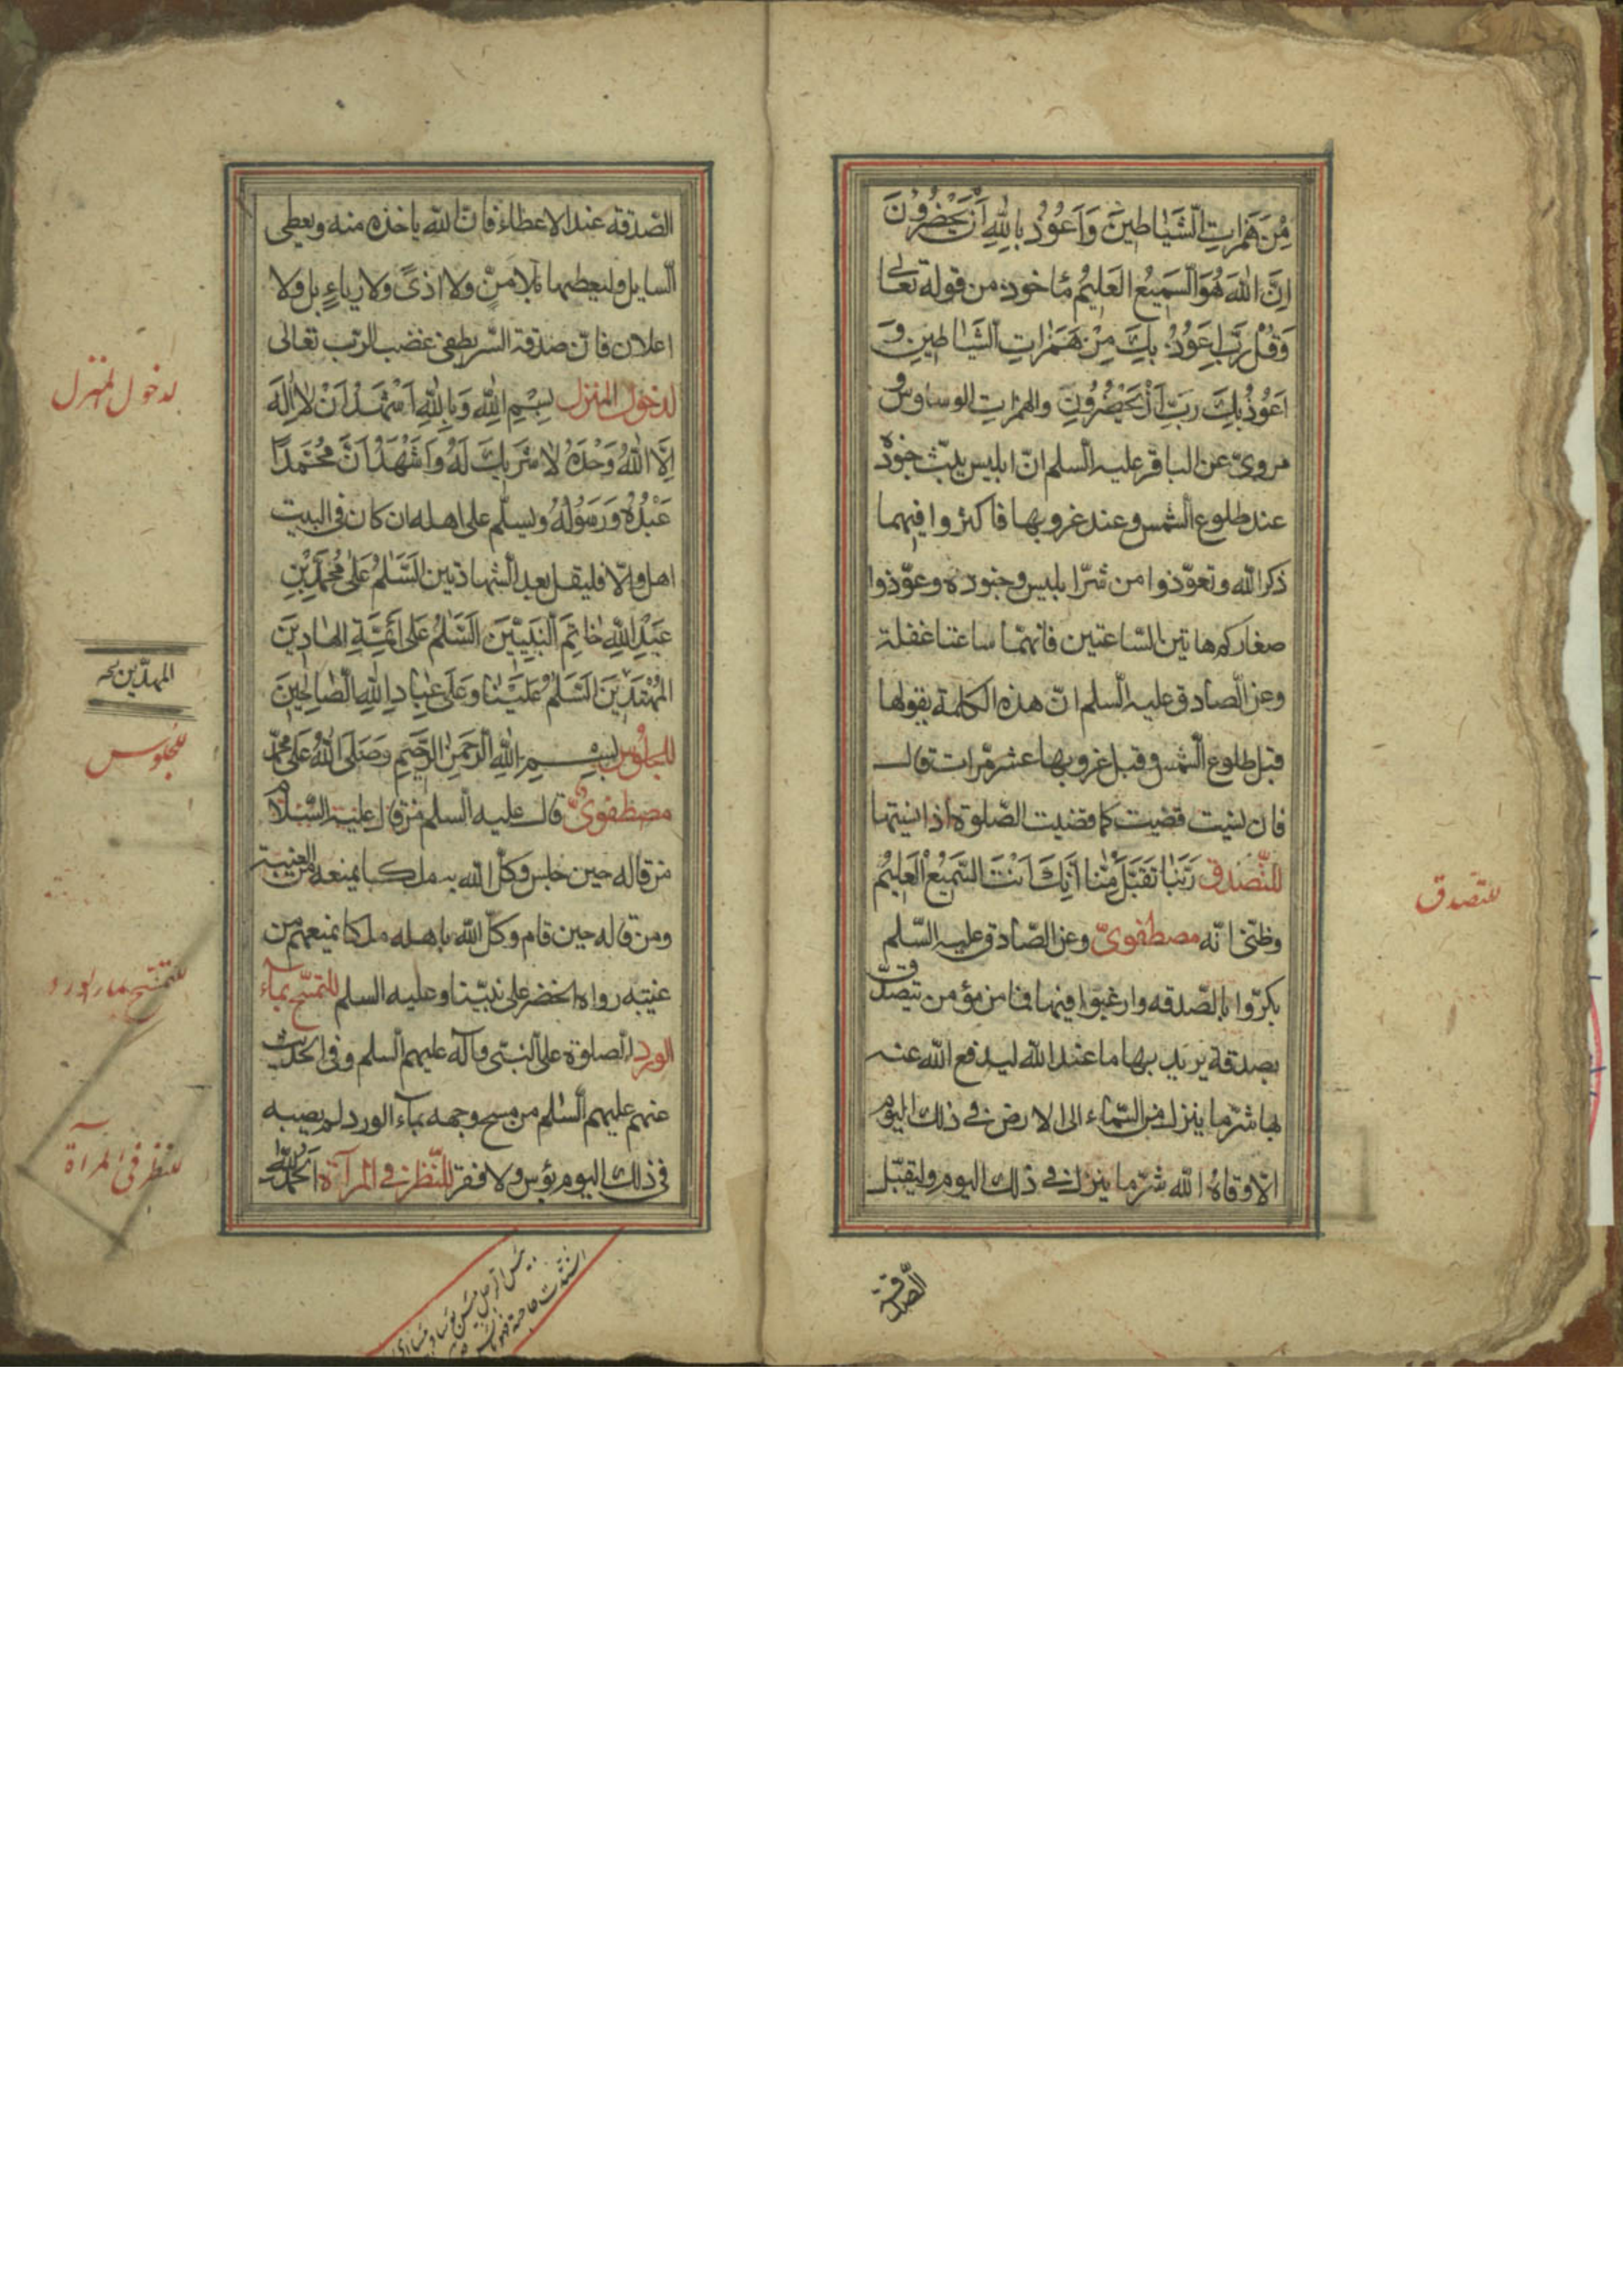 مِنْ هَمَزاتِ الشَّيَاطينَ وَاَعُوذُ بِاللّٰهِ اَنْ يَحْضُرُونَ
اِنَّ اللّٰهَ هُوَ السَّميعُ العَليمُ مأخوذ من قوله تعالى
وَقُلْ رَبِّ اَعُوذُ بِكَ مِنْ هَمَزاتِ الشَّيٰاطينِ وَ
اَعُوذُ بِكَ رَبِّ اَنْ يَحْضُرُونِ والهمزات الوساوس
مروىّ عن الباقر عليه السلم انّ ابليس يبثّ جنوده
عند طلوع الشمس وعند غروبها فاكثروا فيهما
ذكر الله وتعوّذوا من شرّ ابليس وجنوده وعوّذوا
صغاركم هاتين الساعتين فانهمّا ساعتا غفلة
وعن الصادق عليه السلم انّ هذه الكلمة يقولها
قبل طلوع الشمس وقبل غروبها عشر مرّات قال
فان نسيت قضيت كما قضيت الصّلوة اذا نسيتها
للتّصدق رَبَّنٰا تَقَبَّلْ مِنّٰا اِنَّكَ اَنْتَ السَّميعُ العَليمُ
وظنّى انّه مصطفوىّ وعن الصّادق عليه السّلم
بكرّوا بالصّدقه وارغبوا فيها فما من مؤمن يتصدّق
بصدقة يريد بها ما عند الله ليدفع الله عنه
بها شرّ ما ينزل من السّماء الى الارض فى ذلك اليوم
الّا وقاهُ الله شرّ ما ينزل فى ذلك اليوم وليقبّل
الصدقة
للتصدق
الصّدقة عند الاعطاء فانّ الله ياخذه منه ويعطى
السايل وليعطيها بلا مَنٍّ ولا اذىً ولا رياءٍ بل ولا
اعلان فانّ صدقة السّر يطفى غضب الربّ تعالى
لدخول المنزل بِسْمِ اللّٰهِ وَبِاللّٰهِ اَشْهَدُ اَنْ لا اِلٰهَ
اِلَّا اللّٰهُ وَحْدَهُ لا شَريكَ لَهُ وَاَشْهَدُ اَنَّ مُحَمَّداً
عَبْدُهُ وَرَسُولُهُ ويسلّم على اهله ان كان فى البيت
اهل والّا فليقل بعد الشهادتين اَلسَّلٰمُ عَلىٰ مُحَمَّدِ بْنِ
عَبْدِ اللّٰهِ خٰاتَمِ النَّبِيّينَ اَلسَّلٰمُ عَلى اَئِمَّةِ الهٰادينَ
المُهْتَدينَ اَلسَّلٰمُ عَلَيْنٰا وَعَلىٰ عِبٰادِ اللّٰهِ الصّٰالِحينَ
للجلوس بِسْمِ اللّٰهِ الرَّحْمٰنِ الرَّحيمِ وَصَلَّى اللّٰهُ عَلىٰ مُحَمَّدٍ
مصطفوىّ قال عليه السلم من قال عليه السّلام
من قاله حين جلس وكلّ الله به ملكا يمنعه من الغيبة
ومن قاله حين قام وكلّ الله باهله ملكا يمنعهم من
غيبته رواه الخضر على نبيّنا وعليه السلم للتمسّح بمآء
الورد الصلوة على النبىّ وآله عليهم السلم وفى الحديث
عنهم عليهم السّلم من مسح وجهه بمآء الورد لم يصبه
فى ذلك اليوم بؤس ولا فقر للنّظر فى المرآة اَلْحَمْدُ لِلّٰهِ
لدخول المنزل
المهديّين
للجلوس
للتمسّح بماء الورد
للنظر فى المرآة